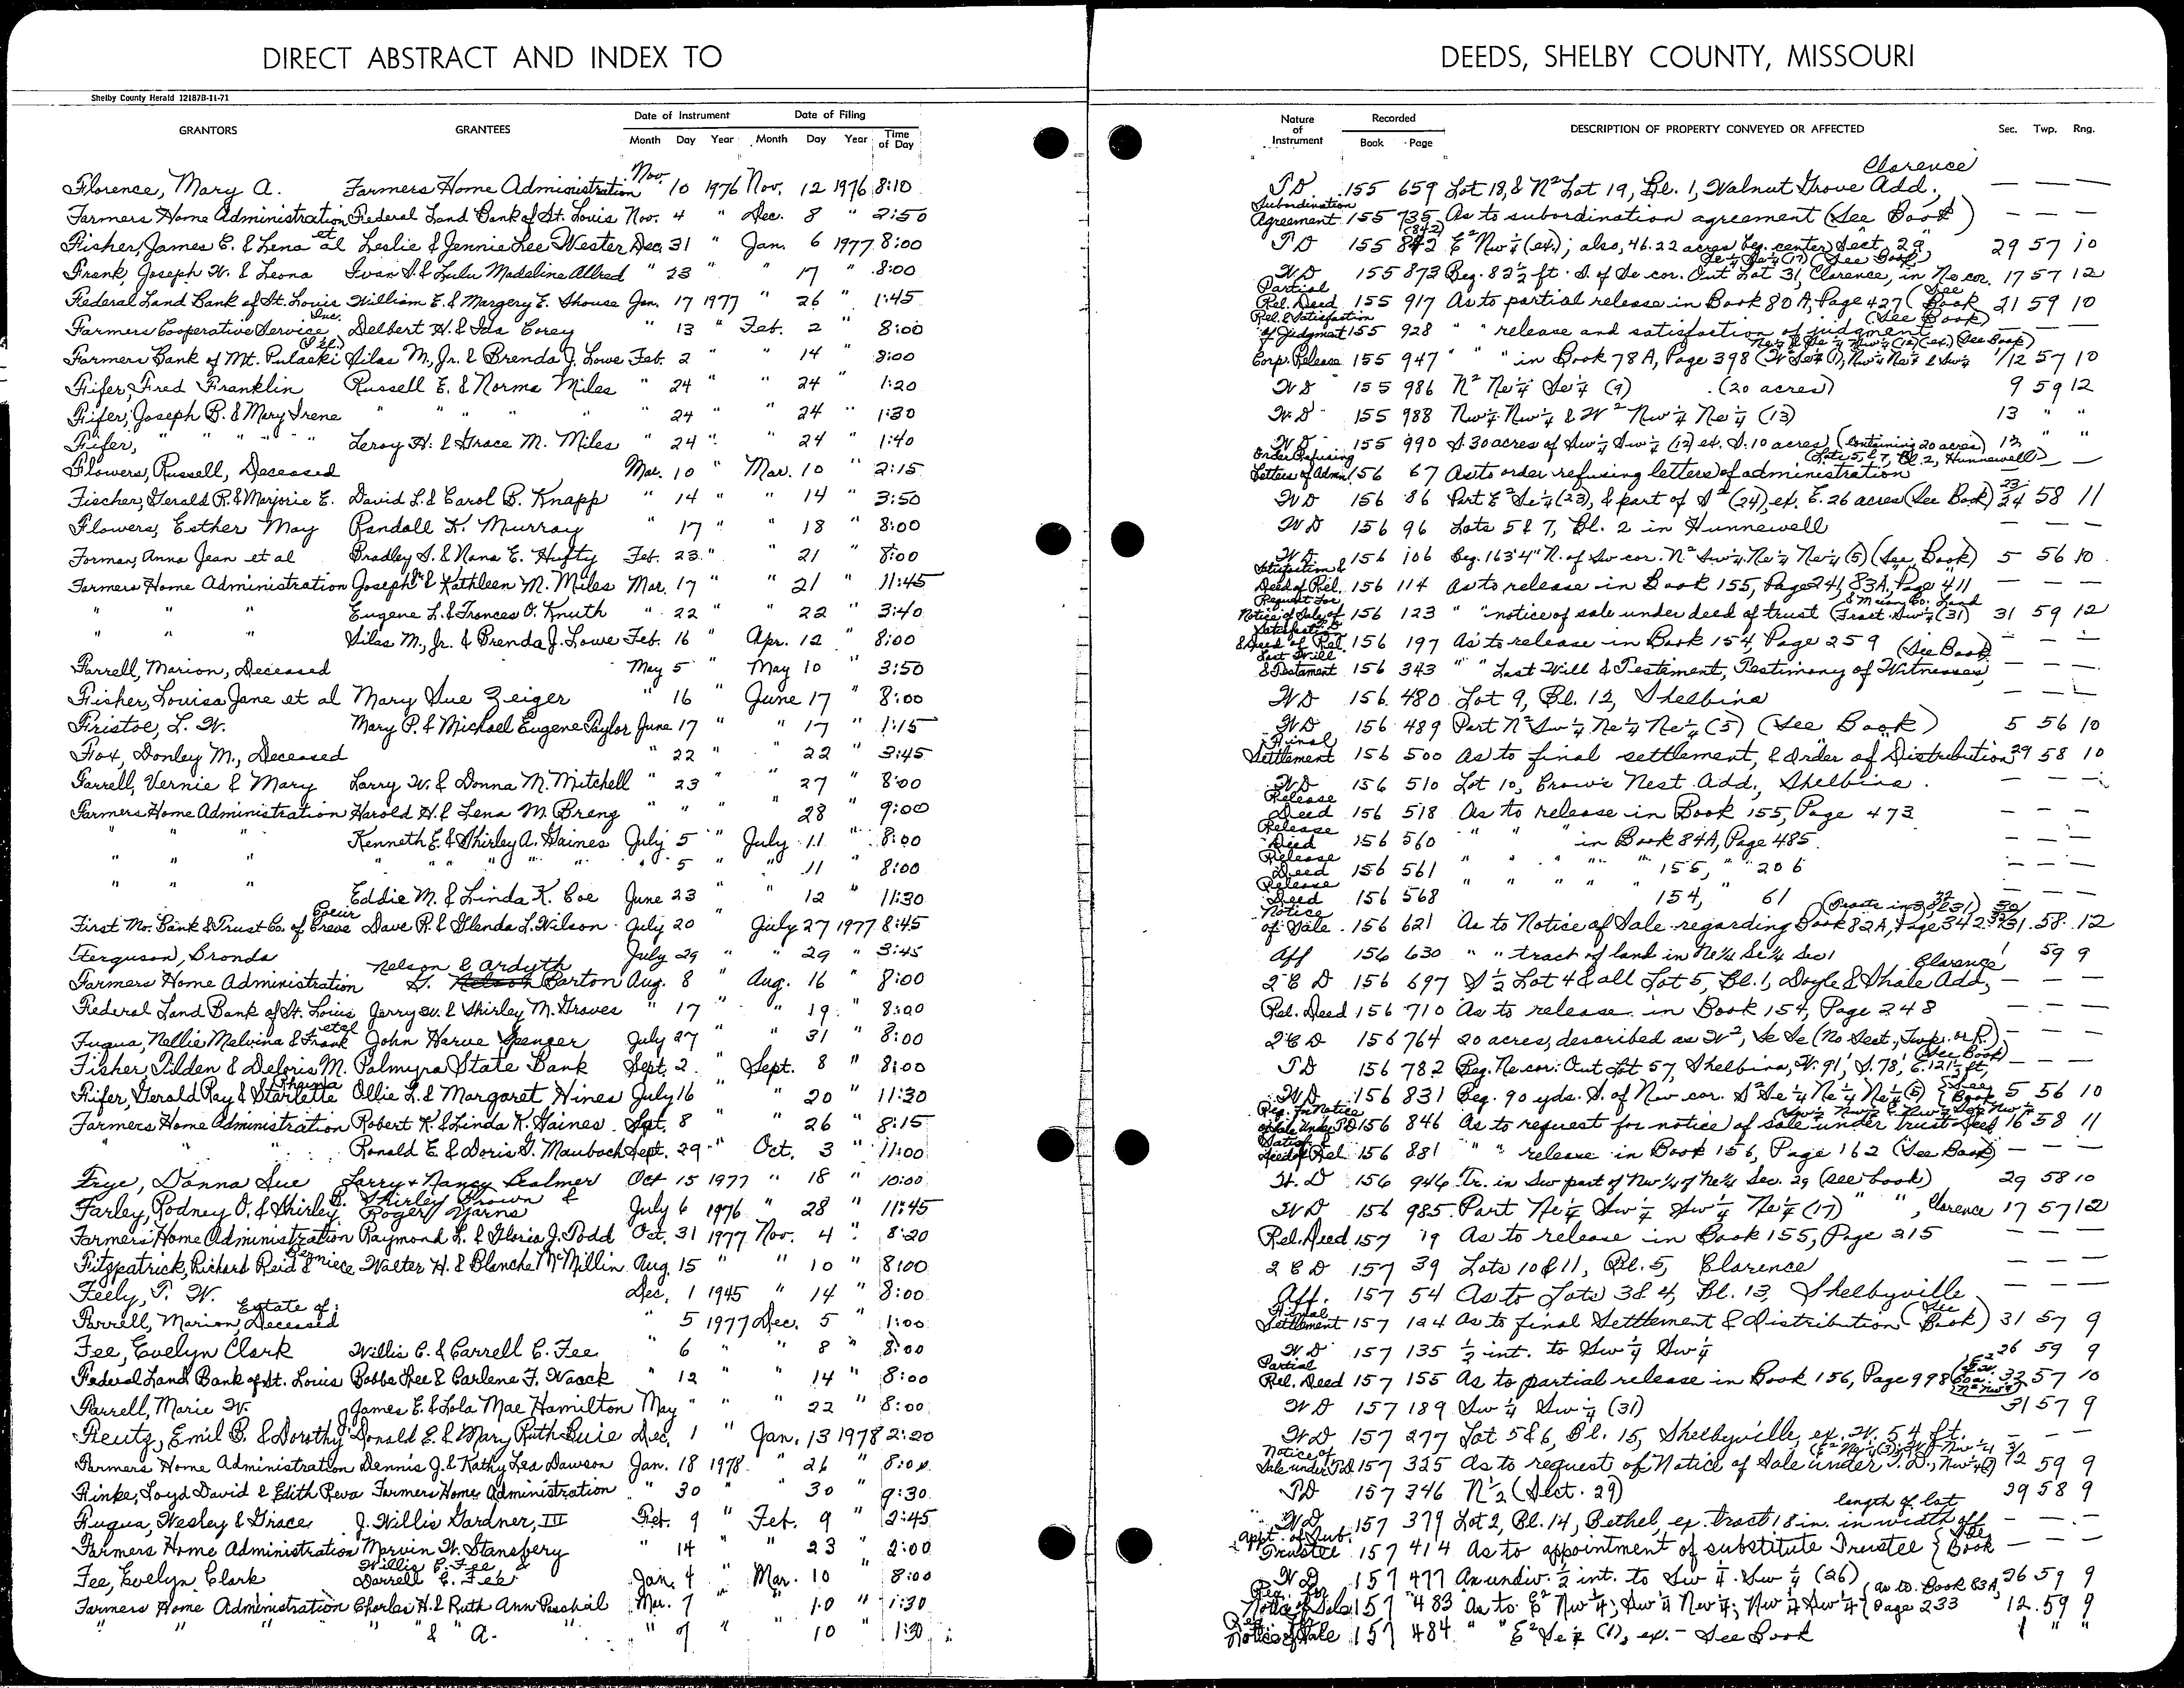 DIRECT ABSTRACT AND INDEX TO
Shelby County Herald 12187B-11-71
GRANTORS GRANTEES Date of Instrument Month Day Year Date of Filing Month Day Year Time of Day
Florence, Mary A. Farmers Home Administration Nov. 10 1976 Nov. 12 1976 8:10
Farmers Home Administration Federal Land Bank of St. Louis Nov. 4 " Dec. 8 " 2:50
Fisher, James E. & Lena et al Leslie & Jennie Lee Wester Dec. 31 " Jan. 6 1977 8:00
Frank, Joseph W. & Leona Ivan S. & Lulu Madeline Allred " 23 " " 17 " 8:00
Federal Land Bank of St. Louis William E. & Margery E. Shouse Jan. 17 1977 " 26 " 1:45
Farmers Cooperative Service, Inc. Delbert H. & Ida Corey " 13 " Feb. 2 " 8:00
Farmers Bank of Mt. Pulaski (Ill.) Silas M., Jr. & Brenda J. Lowe Feb. 2 " " 14 " 8:00
Fifer, Fred Franklin Russell E. & Norma Miles " 24 " " 24 " 1:20
Fifer, Joseph B. & Mary Irene " " " " " 24 " 24 " 1:30
Fifer, " " " " " Leroy H. & Grace M. Miles " 24 " " 24 " 1:40
Flowers, Russell, Deceased Mar. 10 " Mar. 10 " 2:15
Fischer, Gerald R. & Marjorie E. David L. & Carol B. Knapp " 14 " " 14 " 3:50
Flowers, Esther May Randall K. Murray " 17 " " 18 " 8:00
Forman, Anna Jean et al Bradley S. & Nana E. Hufty Feb. 23 " " 21 " 8:00
Farmers Home Administration Joseph & Kathleen M. Miles Mar. 17 " " 21 " 11:45
" " " Eugene L. & Frances O. Knuth " 22 " " 22 " 3:40
" " " Silas M., Jr. & Brenda J. Lowe Feb. 16 " Apr. 12 " 8:00
Farrell, Marion, Deceased May 5 " May 10 " 3:50
Fisher, Louisa Jane et al Mary Sue Zeiger " 16 " June 17 " 8:00
Fristoe, L. W. Mary P. & Michael Eugene Taylor June 17 " " 17 " 1:15
Fox, Donley M., Deceased " 22 " " 22 " 3:45
Farrell, Vernie & Mary Larry W. & Donna M. Mitchell " 23 " 27 " 8:00
Farmers Home Administration Harold H. & Lena M. Breng " " " 28 " 9:00
" " " Kenneth E. & Shirley A. Gaines July 5 " July 11 " 8:00
" " " " " " " " " 5 " " 11 " 8:00
" " " Eddie M. & Linda K. Coe June 23 " " 12 " 11:30
First Mo. Bank & Trust Co. of Creve Coeur Dave R. & Glenda L. Wilson July 20 July 27 1977 8:45
Ferguson, Bronda July 29 " " 29 " 3:45
Farmers Home Administration Nelson & Ardyth G. Barton Aug. 8 " Aug. 16 " 8:00
Federal Land Bank of St. Louis Jerry W. & Shirley M. Graves " 17 " " 19 " 8:00
Fuqua, Nellie Melvina & Frank et al John Harve Spenger July 27 " " 31 " 8:00
Fisher, Tilden & Deloris M. Palmyra State Bank Sept. 2 " Sept. 8 " 8:00
Fifer, Gerald Ray & Starlette Ollie L. & Margaret Hines July 16 " " 20 " 11:30
Farmers Home Administration Robert K. & Linda K. Gaines Sept. 8 " " 26 " 8:15
" " Ronald E. & Doris G. Maubach Sept. 29 " Oct. 3 " 11:00
Frye, Donna Sue Larry + Nancy Oct 15 1977 " 18 " 10:00
Farley, Rodney O. & Shirley B. Shirley Brown & Roger July 6 1976 " 28 " 11:45
Farmers Home Administration Raymond L. & Gloria J. Todd Oct. 31 1977 Nov. 4 " 8:20
Fitzpatrick, Richard Reid & Berniece Walter H. & Blanche McMillin Aug. 15 " " 10 " 8:00
Feely, T. W. Dec. 1 1945 " 14 " 8:00
Farrell, Marion, Deceased Estate of: " 5 1977 Dec. 5 " 1:00
Fee, Evelyn Clark Willis C. & Carrell C. Fee " 6 " " 8 " 8:00
Federal Land Bank of St. Louis Bobbe Lee & Carlene F. Waack " 12 " " 14 " 8:00
Farrell, Marie W. James E. & Lola Mae Hamilton May " " " 22 " 8:00
Feutz, Emil B. & Dorothy Donald E. & Mary Ruth Buie Dec. 1 " Jan. 13 1978 2:20
Farmers Home Administration Dennis J. & Kathy Lea Dawson Jan. 18 1978 " 26 " 8:00
Finke, Loyd David & Edith Reva Farmers Home Administration " 30 " " 30 " 9:30
Fuqua, Wesley & Grace J. Willis Gardner, III Feb. 9 " Feb. 9 " 2:45
Farmers Home Administration Marvin W. Stansbery " 14 " " 23 " 2:00
Fee, Evelyn Clark Willis C. Fee & Darrell C. Fee Jan. 4 " Mar. 10 8:00
Farmers Home Administration Charles H. & Ruth Ann Paschal Mar. 7 " " 10 " 1:30
" " " " & " A. " " 7 " 10 " 1:30
DEEDS, SHELBY COUNTY, MISSOURI
Nature of Instrument Recorded Book Page DESCRIPTION OF PROPERTY CONVEYED OR AFFECTED Sec. Twp. Rng.
TD 155 659 Lot 18, & N² Lot 19, Bl. 1, Walnut Grove Add., Clarence — — —
Subordination Agreement 155 735 As to subordination agreement (See Book) — — —
TD 155 842 (842) E² Nw¼ (ex.); also, 46.22 acres beg. center Sect. 29, 29 57 10
WD 155 873 Beg. 82½ ft. S. of Se cor. Out Lot 31, Clarence, in Ne cor. Se¼ Se¼ (17) (See Book) 17 57 12
Partial Rel. Deed 155 917 As to partial release in Book 80A, Page 427 (See Book) 21 59 10
Rel. & Satisfaction of Judgment 155 928 " " release and satisfaction of judgment (See Book) — — —
Corp. Release 155 947 " " " in Book 78A, Page 398 1/12 57 10
WD 155 986 N² Ne¼ Se¼ (9) (20 acres) 9 59 12
WD 155 988 Nw¼ Nw¼ & W² Nw¼ Ne¼ (13) 13 " "
WD 155 990 S. 30 acres of Sw¼ Sw¼ (12) ex. S. 10 acres) (containing 20 acres) 12 " "
Order Refusing Letters of Admn. 156 67 As to order refusing letters of administration (Lots 5 & 7, Bl. 2, Hunnewell) — —
WD 156 86 Part E² Se¼ (23), & part of S² (24) ex. E. 26 acres (See Book) 23/24 58 11
WD 156 96 Lots 5 & 7, Bl. 2 in Hunnewell — — —
WD 156 106 Beg. 163'4" N. of Sw cor. N² Sw¼ Ne¼ Ne¼ (5) (See Book) 5 56 10
Satisfaction & Deed of Rel. 156 114 As to release in Book 155, Page 241, 83A, Page 411 — — —
Request For Notice of Sale 156 123 " " notice of sale under deed of trust (Tract Sw¼ (31) & Macon Co. Land 31 59 12
Satisfaction & Deed of Rel. 156 197 As to release in Book 154, Page 259 (See Book) — — —
Last Will & Testament 156 343 " " Last Will & Testament, Testimony of Witnesses, — — —
WD 156 480 Lot 9, Bl. 12, Shelbina — — —
WD 156 489 Part N² Sw¼ Ne¼ Ne¼ (5) (See Book) 5 56 10
Final Settlement 156 500 As to final settlement, & Order of Distribution 29 58 10
WD 156 510 Lot 10, Crow's Nest Add., Shelbina. — — —
Release Deed 156 518 As to release in Book 155, Page 473 — — —
Release Deed 156 560 " " " in Book 84A, Page 485 — — —
Release Deed 156 561 " " " " 155, " 206 — — —
Release Deed 156 568 " " " " " 154, " 61 — — —
Notice of Sale 156 621 As to Notice of Sale regarding Book 82A, Page 342 58 12
Aff 156 630 " " tract of land in Ne¼ Se¼ Sec 1 1 59 9
QCD 156 697 S½ Lot 4 & all Lot 5, Bl. 1, Doyle & Shale Add., Clarence — — —
Rel. Deed 156 710 As to release in Book 154, Page 248 — — —
QCD 156 764 20 acres, described as W², Se Se (No Sect., Twp. or R.) — — —
TD 156 782 Beg. Ne cor. Out Lot 57, Shelbina, W. 91', S. 78', E. 121½ ft. (See Book) — — —
WD 156 831 Beg. 90 yds. S. of Nw cor. S² Se¼ Ne¼ Ne¼ (5) (See Book) 5 56 10
Req. For Notice of Sale Under TD 156 846 As to request for notice of sale under trust deed 16 58 11
Satisf. & Deed of Rel 156 881 " " release in Book 156, Page 162 (See Book) — — —
W.D 156 946 Tr. in Sw part of Nw¼ of Ne¼ Sec. 29 (see book) 29 58 10
WD 156 985 Part Ne¼ Sw¼ Sw¼ Ne¼ (17) " ", Clarence 17 57 12
Rel. Deed 157 19 As to release in Book 155, Page 215 — — —
QCD 157 39 Lots 10 & 11, Bl. 5, Clarence — — —
Aff. 157 54 As to Lots 3 & 4, Bl. 13, Shelbyville — — —
Final Settlement 157 124 As to final Settlement & Distribution (See Book) 31 57 9
WD 157 135 ½ int. to Sw¼ Sw¼ 26 59 9
Partial Rel. Deed 157 155 As to partial release in Book 156, Page 998 57 10
WD 157 189 Sw¼ Sw¼ (31) 31 57 9
WD 157 277 Lot 5 & 6, Bl. 15, Shelbyville, ex. W. 54 ft. — — —
Notice of Sale under TD 157 325 As to request of Notice of Sale under T.D., 59 9
TD 157 346 N½ (Sect. 29) 29 58 9
WD 157 379 Lot 2, Bl. 14, Bethel, ex. tract 18 in. in width off length of lot — — —
Appt. of Sub. Trustee 157 414 As to appointment of substitute Trustee (See Book — — —
WD 157 477 An undiv. ½ int. to Sw¼ Sw¼ (26) 26 59 9
Req. for Notice of Sale 157 483 As to E² Nw¼; Sw¼ Nw¼; Nw¼ Sw¼ (as to Book 83A, Page 233 12 59 9
Req. for Notice of Sale 157 484 " " E² Se¼ (1), ex. - See Book 1 " "